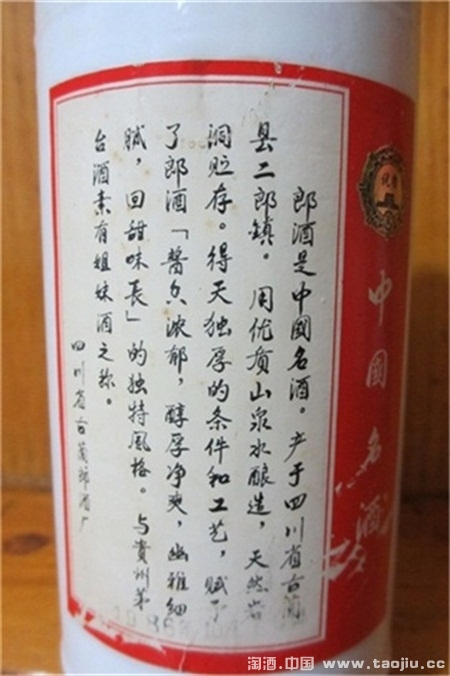 中國名酒
郎酒是中國名酒。产于四川省古蔺
县二郎鎮。用优质山泉水酿造，天然岩
洞贮存。得天独厚的条件和工艺，赋予
了郎酒「醬香浓郁，醇厚净爽，幽雅细
腻，回甜味長」的独特風格。与貴州茅
台酒素有姐妹酒之称。
四川省古蔺郎酒厂
淘酒.中国 www.taojiu.cc